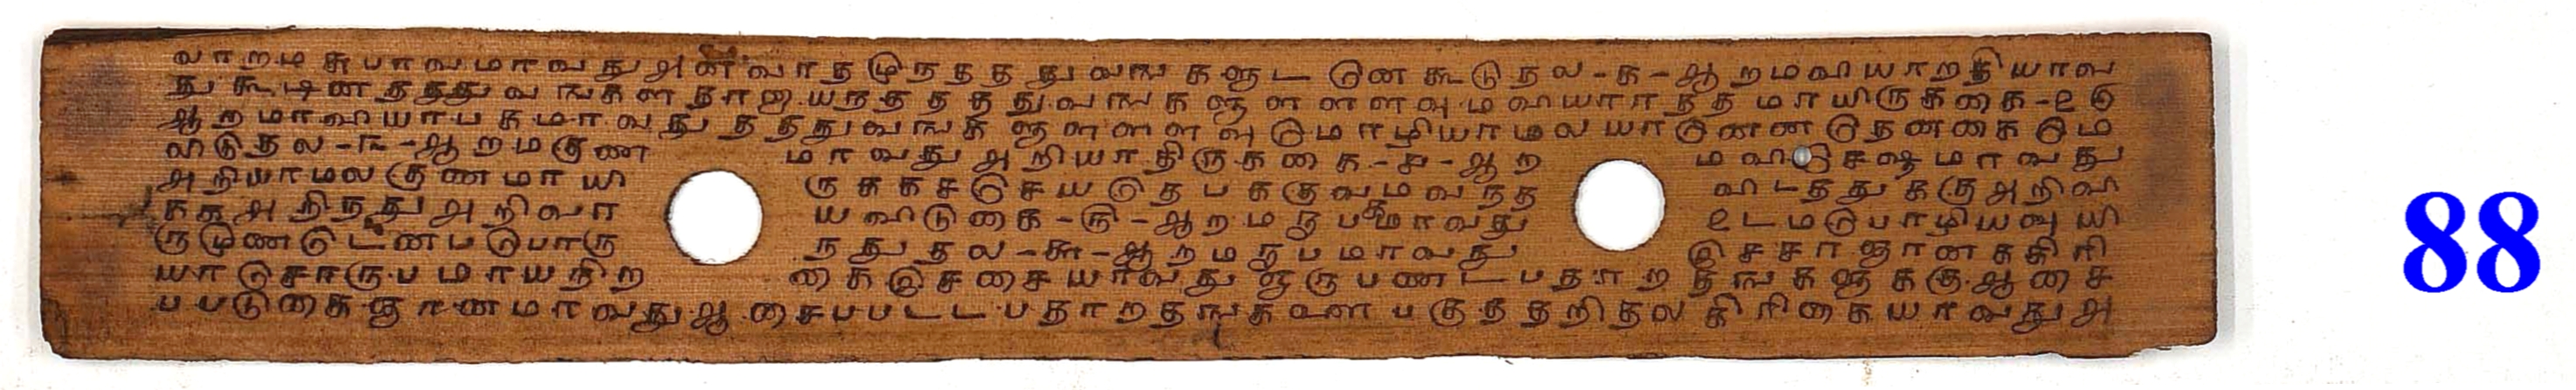 வாறம சுபாவமாவது அனவாத மூநதத துவஙகளுட னெகூடுதல - க - ஆறமவியாறதியாவ
து கூடின தததுவ ஙகள தானெயநதத தது வஙக ளுளளளவு ம வியாாதத மாயிருககை - ௨ டு
ஆறமாவியாபகமாவது தததுவஙக ளுளளளவு மொழியாமல யானெனனெதனகை மெ
விடுதல - ௩ - ஆறமகுண மாவது அறியாதிருககை - ௪ - ஆற ம விசெஷமாவது
அறியாமல குணமாயி ருககசசெசெயதெபககுவமவநத விடதது ககுஅறிவி
கக அறிநதுஅறிவா யவிடுகை - ௫ - ஆறமரூபமாவது ௨டமபொழியவு யி
ருமுணடெனபபொரு நதுதல - ௬ - ஆறமரூபமாவது இசசாஞானககிரி
யாசொருபமாயநிற கைஇசசையாவது ஒருபணடபதாறதஙகளுககுஆசை
பபடுகை ஞானமாவது ஆசைபபடடபதாறதஙகளை பகுததறிதல கிரிகையாவது அ
88